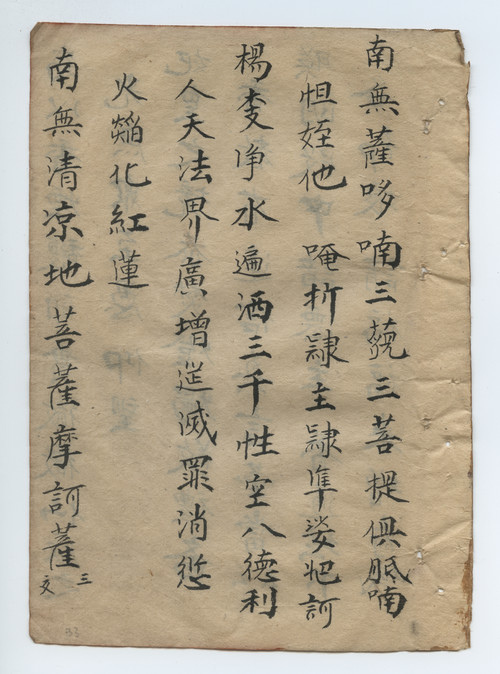 南無薩哆喃三藐三菩提俱胝喃
怛姪他 唵折隸主隸凖娑𠰷訶
楊枝净水遍洒三千性空八德利
人天法界廣增延滅罪消愆
火燄化紅蓮
南無清凉地菩薩摩訶薩
三文